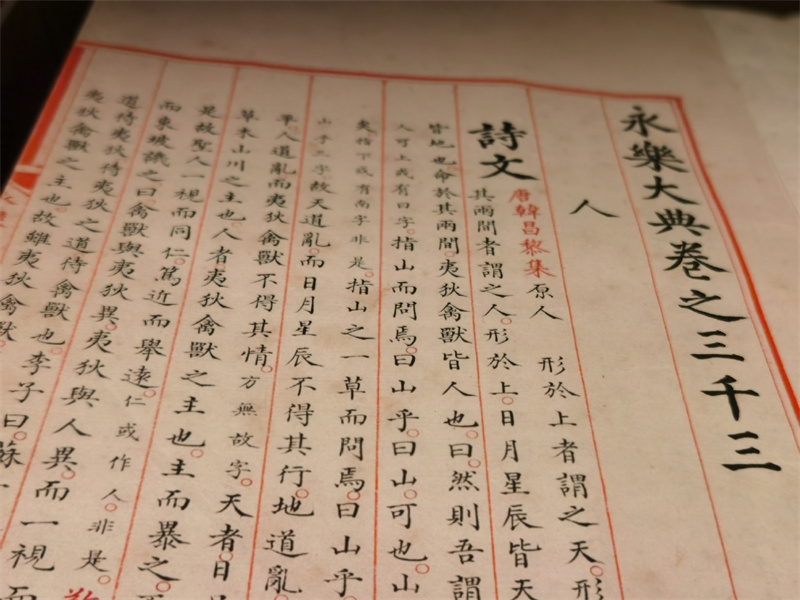 永樂大典卷之三千三
人
詩文
唐韓昌黎集 原人 形於上者謂之天。形
其兩間者謂之人。形於上。日月星辰皆天
皆地也。命於其兩間。夷狄禽獸皆人也。曰。然則吾謂
人可上或有曰字。指山而問焉。曰山乎。曰山。可也。山
夷指下或有而字非是。指山之一草而問焉。曰山乎
山乎三字故天道亂。而日月星辰不得其行。地道亂
平。人道亂而夷狄禽獸不得其情。方無故字。天者。日
草木山川之主也。人者夷狄禽獸之主也。主而暴之。
是故聖人一視而同仁。篤近而舉遠。仁或作人。非是。
而東坡譏之曰。禽獸與夷狄異。夷狄與人異。而一視而
道待夷狄待夷狄之道待禽獸也。李子曰。蘇
夷狄禽獸之主也。故雖夷狄禽獸